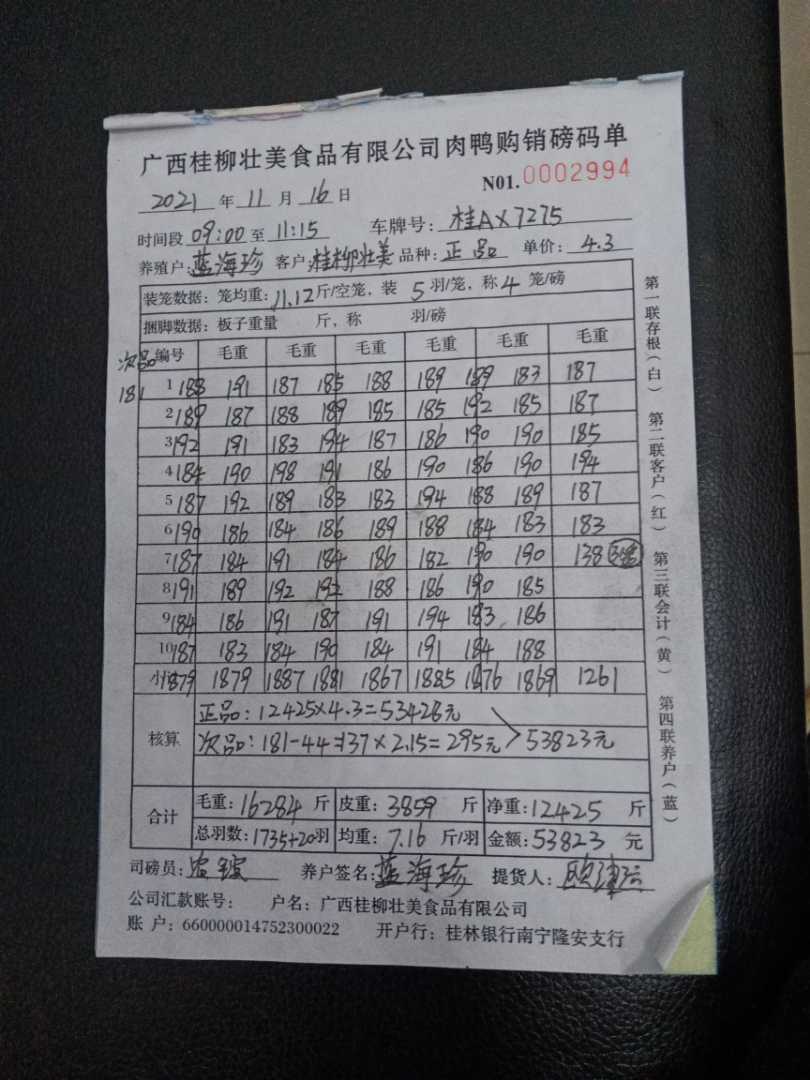 广西桂柳壮美食品有限公司肉鸭购销磅码单
2021 年 11 月 16 日 N01. 0002994
时间段 09:00 至 11:15 车牌号: 桂AX7275
养殖户: 蓝海珍 客户: 桂柳壮美 品种: 正品 单价: 4.3
装笼数据: 笼均重: 11.12 斤/空笼, 装 5 羽/笼, 称 4 笼/磅
捆脚数据: 板子重量 斤, 称 羽/磅
次品 编号 毛重 毛重 毛重 毛重 毛重 毛重
181 1 188 191 187 185 188 189 189 183 187
2 189 187 188 189 185 185 192 185 187
3 192 191 183 194 187 186 190 190 185
4 184 190 198 191 186 190 186 190 194
5 187 192 189 183 183 194 188 189 187
6 190 186 184 186 189 188 184 183 183
7 187 184 191 184 186 182 190 190 138
8 191 189 192 192 188 186 190 185
9 184 186 191 187 191 194 183 186
10 187 183 184 190 184 191 184 188
小 1879 1879 1887 1881 1867 1885 1876 1869 1261
核算
正品: 12425×4.3=53428元
次品: 181-44=137×2.15=295元 > 53823元
合计
毛重: 16284 斤 皮重: 3859 斤 净重: 12425 斤
总羽数: 1735+20羽 均重: 7.16 斤/羽 金额: 53823 元
司磅员: 养户签名: 蓝海珍 提货人:
公司汇款账号: 户名: 广西桂柳壮美食品有限公司
账 户: 660000014752300022 开户行: 桂林银行南宁隆安支行
第一联存根(白) 第二联客户(红) 第三联会计(黄) 第四联养户(蓝)